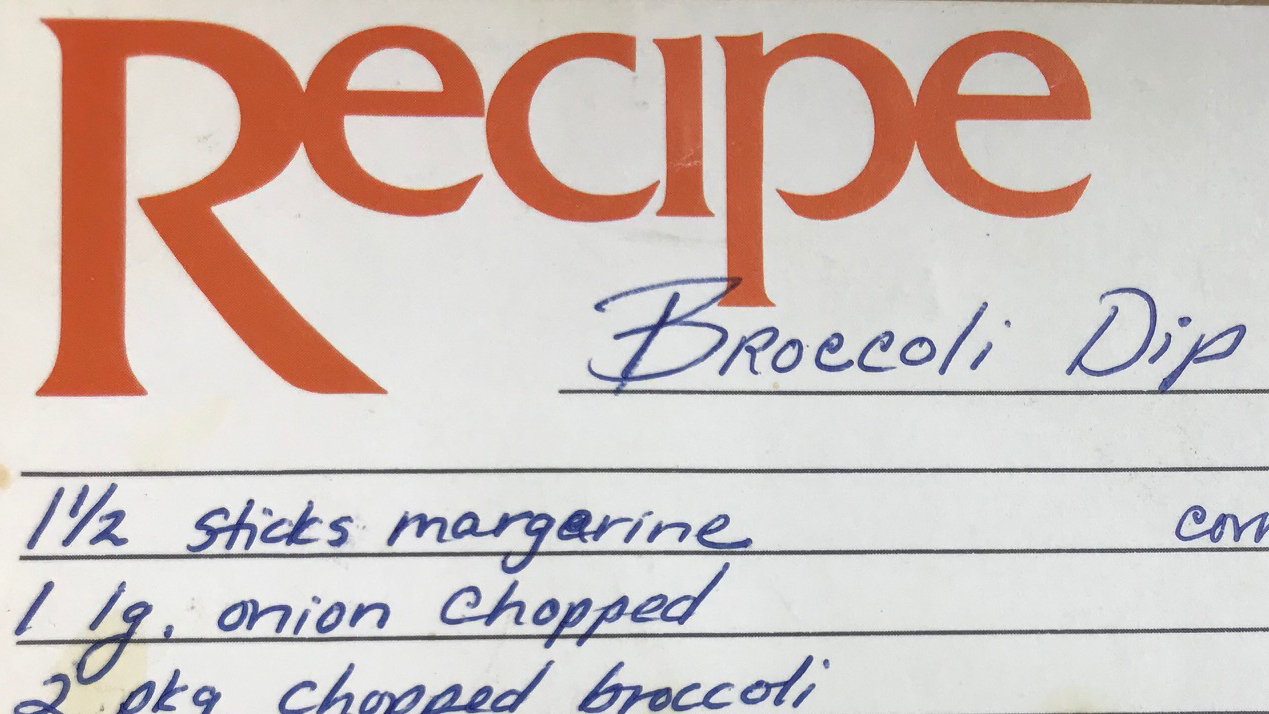 Recipe
Broccoli Dip
1 1/2 sticks margarine
1 lg. onion chopped
2 pkg chopped broccoli